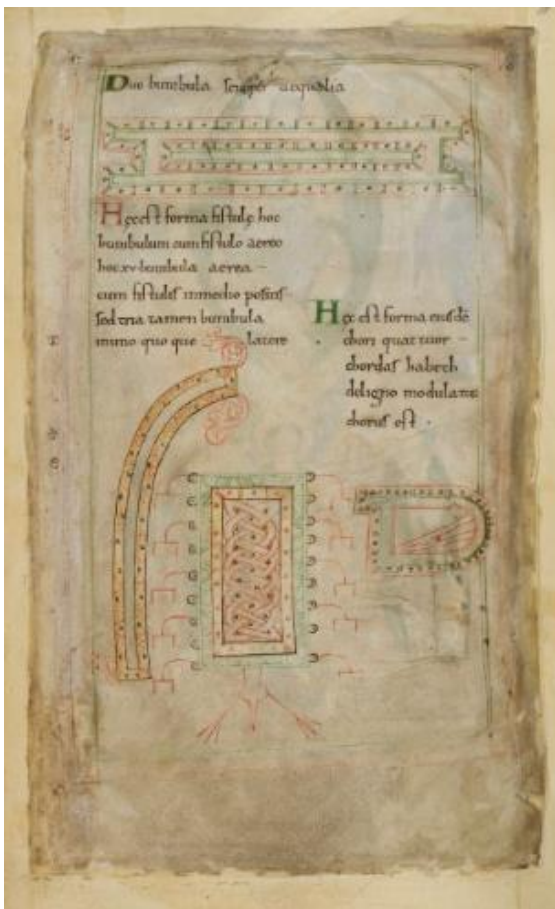 Duo bumbula semper aequalia
Hęc est forma fistulę hoc
bumbulum cum fistulo aereo
hoc xv bumbula aerea
cum fistulis in medio positis
sed tria tamen bumbula
in uno quo que latere
Hęc est forma eiusdē
chori quattuor
chordas habeth
de ligno modulatis
chorus est .